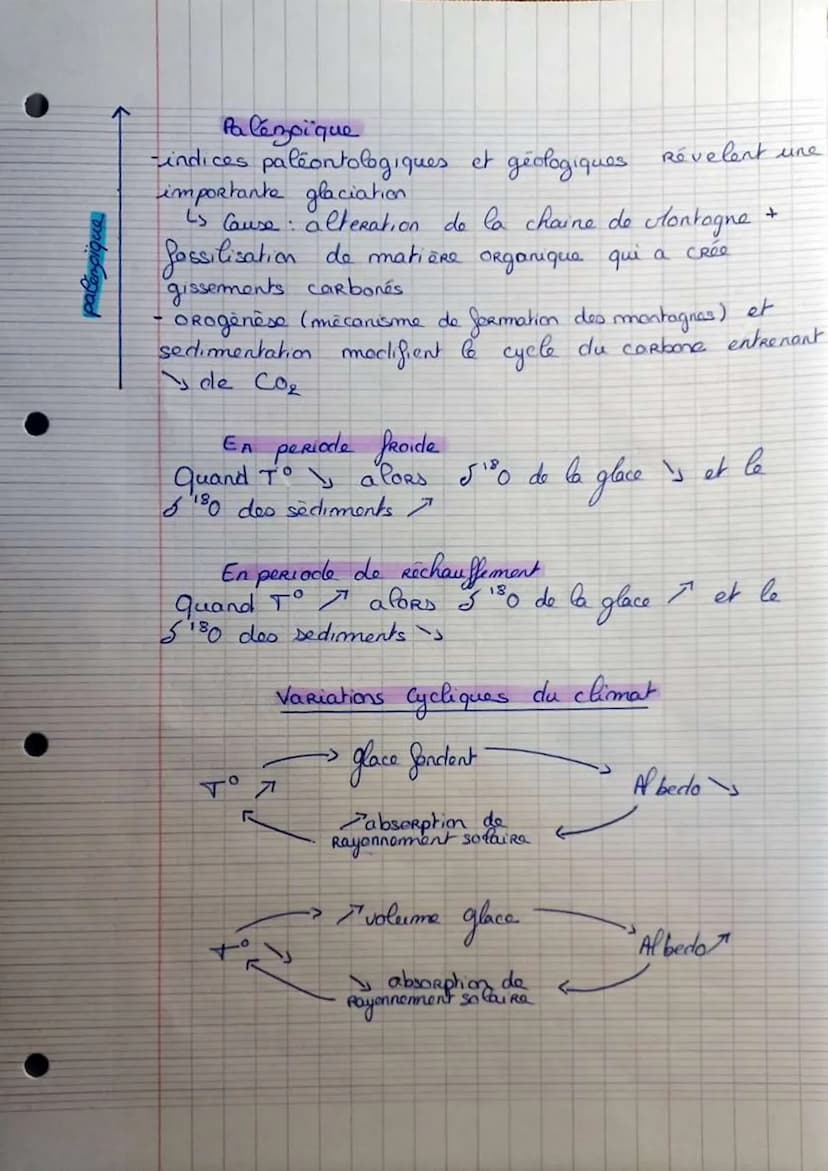 Paléozoïque
-indices paléontologiques et géologiques révelent une
importante glaciation
↳ Cause : alteration de la chaine de Montagne +
fossilisation de matière organique qui a créé
gissements carbonés
- orogénèse (mécanisme de formation des montagnes) et
sedimentation modifient le cycle du carbone entrenant
↘ de CO₂
paléozoïque
En periode froide
Quand T° ↘ alors δ¹⁸O de la glace ↘ et le
δ¹⁸O des sédiments ↗
En periode de réchauffement
Quand T° ↗ alors δ¹⁸O de la glace ↗ et le
δ¹⁸O des sediments ↘
Variations Cycliques du climat
glace fondent
T° ↗
Albedo ↘
↗ absorption de
rayonnement solaire
↗ volume glace
T° ↘
Albedo ↗
↘ absorption de
Rayonnement solaire